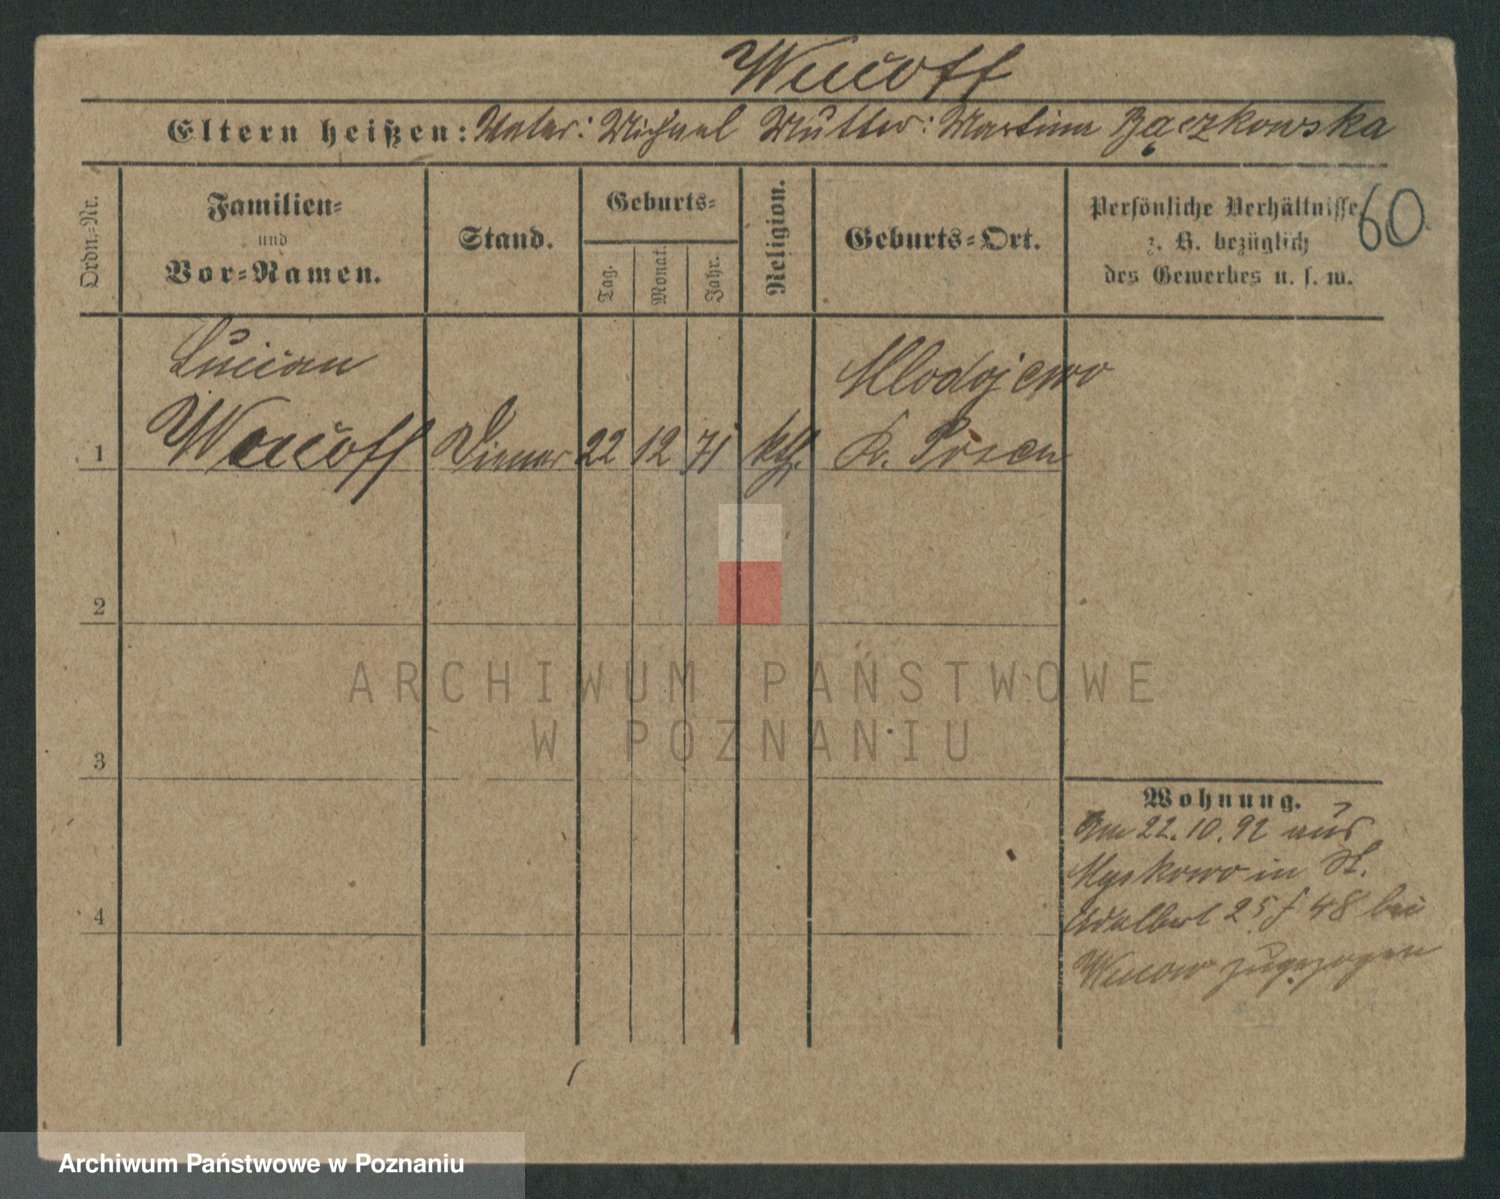 Wucoff
Eltern heißen: Vater: Michael Mutter: Martina Bączkowska
Ordn.-Nr.
Familien-
und
Vor-Namen.
Stand.
Geburts-
Tag.
Monat.
Jahr.
Religion.
Geburts-Ort.
Persönliche Verhältnisse
z. B. bezüglich
des Gewerbes u. s. w.
60
Lucian
Mlodojewo
1 Diener 22 12 71 kth. Kr. Posen
2
3
4
Wohnung.
Am 22.10.92 aus
in St.
Adalbert 25 f 48 bei
zugezogen
ARCHIWUM PAŃSTWOWE
W POZNANIU
Archiwum Państwowe w Poznaniu